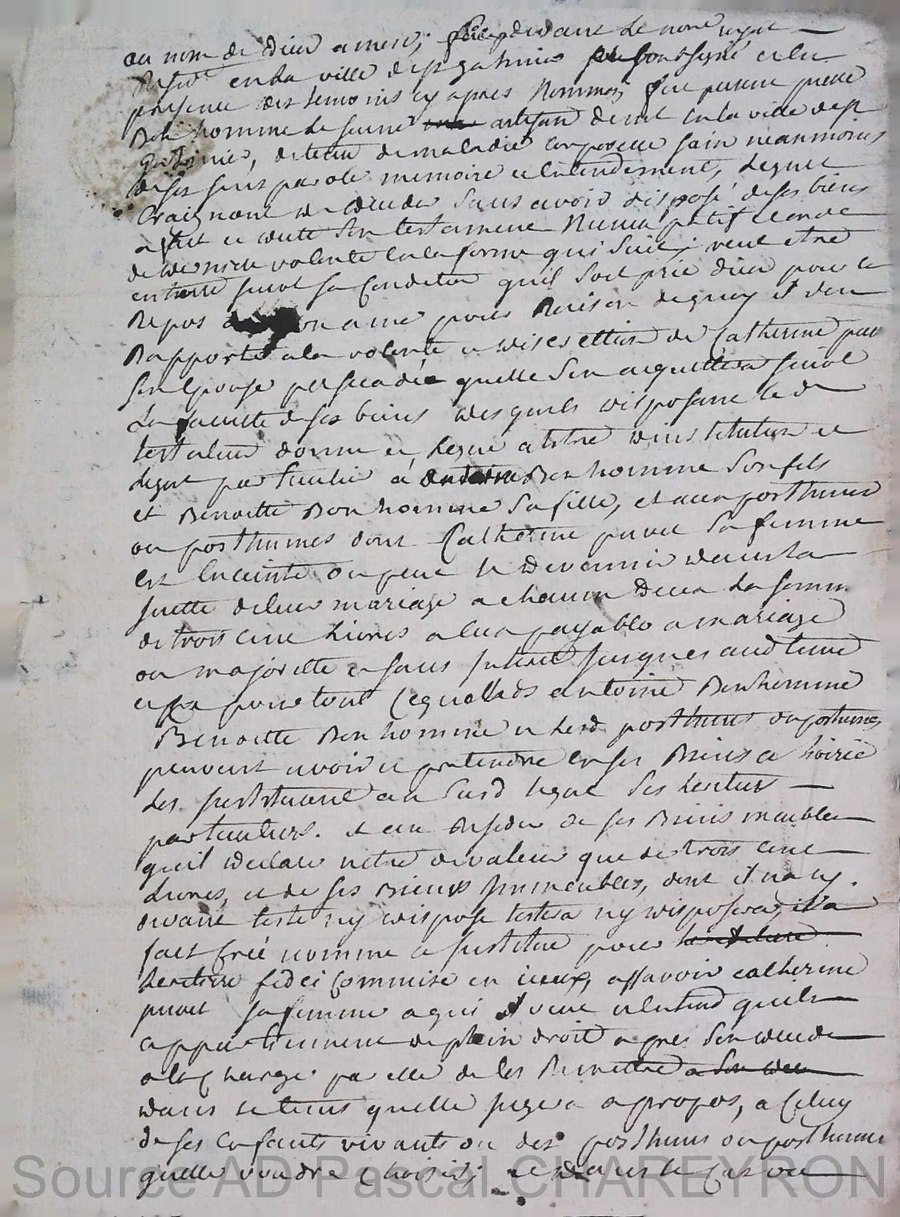 au nom de dieu amen; pardevant le not.re royal
Reservé en la ville de st galmier soussigné et en
presence des temoins cy apres nommés fut present pierre
Bon homme le jeune artisan demt en la ville de st
galmier, detenu de maladie corporelle sain neanmoins
de ses sens parole memoire et entendement, lequel
craignant de deceder sans avoir disposé de ses biens
a fait et dicté son testament nuncupatif et ordce
de derniere volonté en la forme qui suit; veut etre
enterré suivt sa condition qu'il soit prié dieu pour le
Repos de son ame pour Raison de quoy il s'en
Rapporte a la volonté et discretion de Catherine
son Epouse persuadé quelle s'en acquittera suivt
la faculté de ses biens desquels disposant led
testateur donne et legue a titre d'institution et
legat particulier à antoine Bon homme son fils
et Benoitte Bon homme sa fille, et au posthume
ou posthumes dont Catherine sa femme
est Enceinte ou peut le devenir dans la
suitte de leur mariage a chacun deux la somme
de trois cent Livres a eux payable a mariage
ou majorité et sans interet jusques audt tems
et ce pour tout ce que lesds antoine Bonhomme
Benoitte Bon homme et lesd posthume ou posthumes
peuvent avoir et pretendre en ses Biens et hoirie
les instituant au susd legat ses heritiers
particuliers. et au Residu de ses Biens meubles
qu'il declare n'etre de valeur que de trois cent
Livres, et de ses Biens immeubles, dont il n'a cy
devant testé n'y disposé testera n'y disposera, il a
fait créé nommé et institué pour
heritiere fidei commise en iceux, assavoir catherine
sa femme a qui il veut et entend qu'ils
appartiennent de plein droit apres son deced
a la charge par elle de les Remettre a son dece
dans le tems quelle jugera a propos, a Celuy
de ses Enfants vivants ou des posthume ou posthumes
quelle voudra choisir; et dans le cas ou
Source AD Pascal CHAREYRON